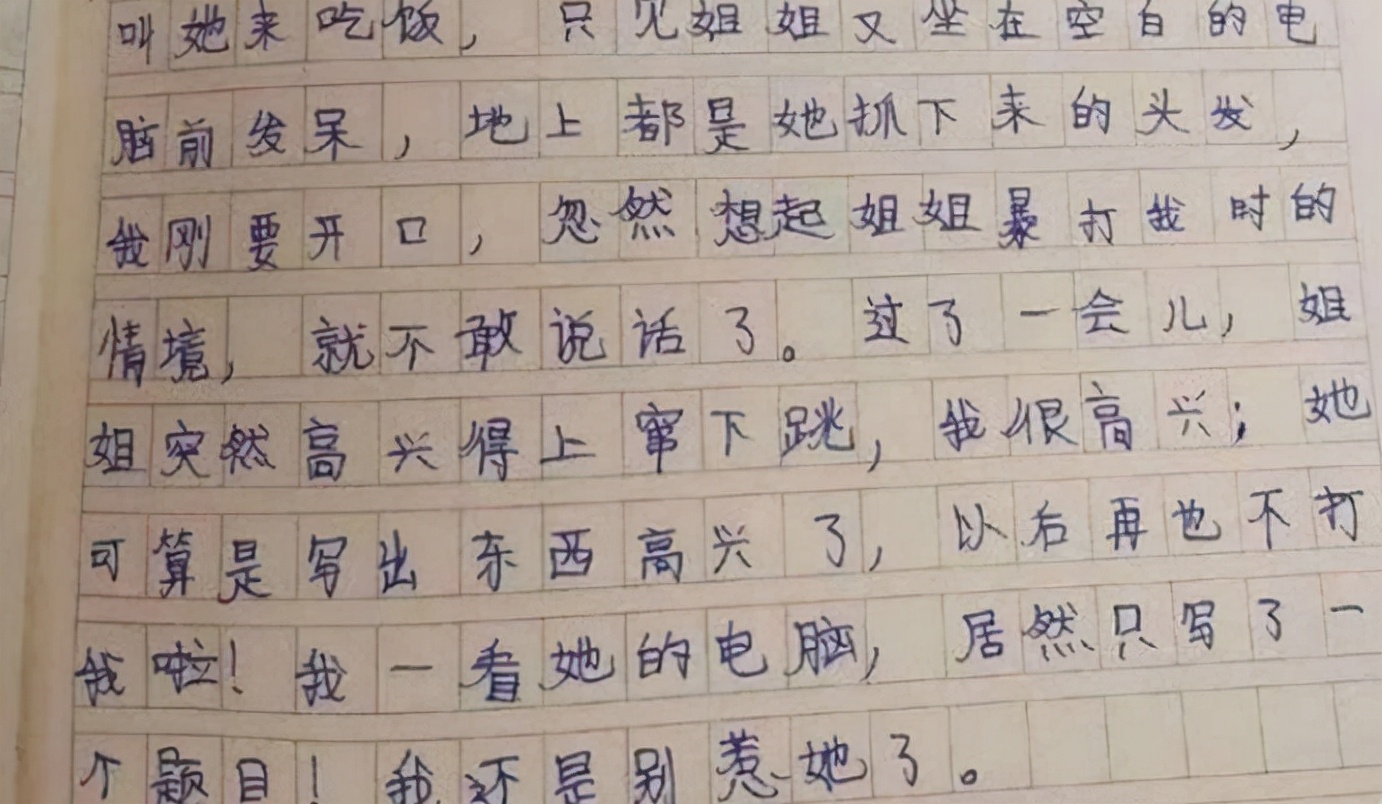 叫她来吃饭，只见姐姐又坐在空白的电
脑前发呆，地上都是她抓下来的头发，
我刚要开口，忽然想起姐姐暴打我时的
情境，就不敢说话了。过了一会儿，姐
姐突然高兴得上窜下跳，我很高兴；她
可算是写出东西高兴了，以后再也不打
我啦！我一看她的电脑，居然只写了一
个题目！我还是别惹她了。